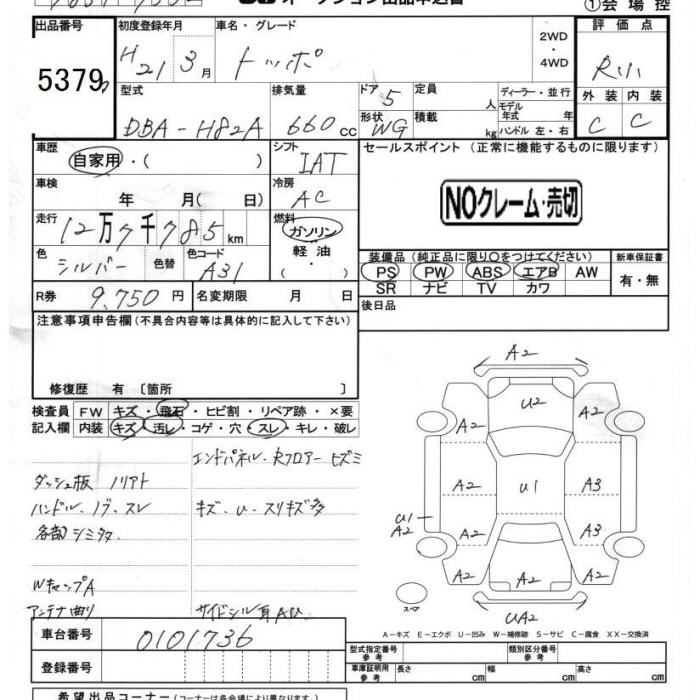 オークション出品申込書
①会場控
出品番号
初度登録年月
車名・グレード
2WD
・
4WD
評価点
5379
H21年3月
トッポ
R小
型式
排気量
ドア
定員
ディーラー・並行
外装
内装
DBA-H82A
660cc
5
人
モデル年式 年
C
C
形状
積載
WG
kg
ハンドル 左・右
車歴
自家用・(
)
シフト
IAT
セールスポイント(正常に機能するものに限ります)
車検
年 月(日)
冷房
AC
NOクレーム・売切
走行
12万7千785km
燃料
ガソリン
軽油
・
色
シルバー
色替
色コード
A31
装備品(純正品に限り〇をつけてください)
新車保証書
PS
PW
ABS
エアB
AW
有・無
SR
ナビ
TV
カワ
R券
9,750円
名変期限 月 日
後日品
注意事項申告欄(不具合内容等は具体的に記入して下さい)
修復歴 有 [箇所 ]
検査員記入欄
FW
キズ・飛石・ヒビ割・リペア跡・×要
内装
キズ・汚レ・コゲ・穴・スレ・キレ・破レ
エンドパネル・Rフロアーヒズミ
ダッシュ板 ノリアト
ハンドル・ノブ・スレ
キズ・U・スリキズ多
各部シミタタ
WキャップA
アンテナ曲り
サイドシル耳AU
A2
U2
A2
A2
A2
U1
A3
U1
A2
A2
A3
A2
A2
A2
スペア
UA2
A-キズ E-エクボ U-凹み W-補修跡 S-サビ C-腐食 XX-交換済
車台番号
0101736
型式指定番号
参考
類別区分番号
参考
登録番号
車庫証明用
参考
長さ cm
幅 cm
高さ cm
希望出品コーナー(コーナーは各会場により異なります)